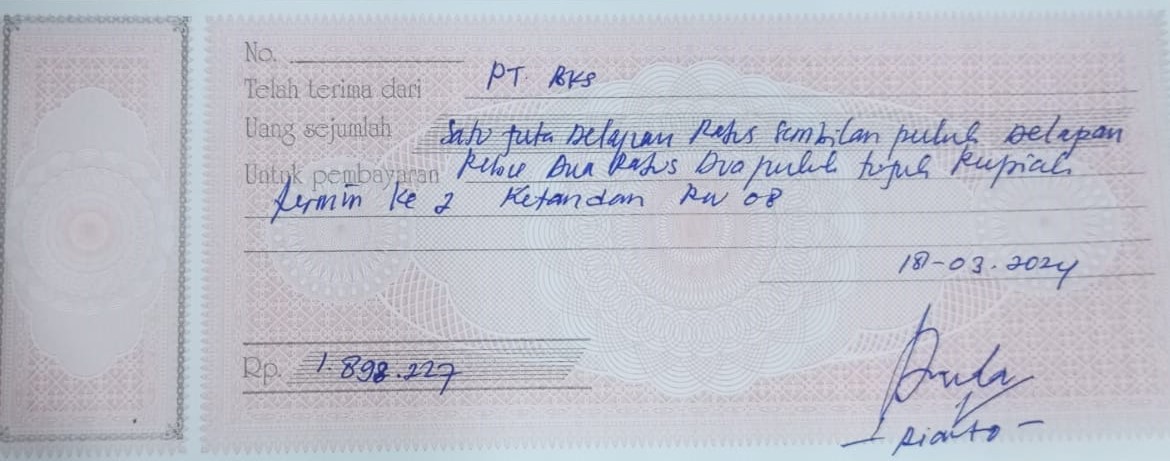 No.
Telah terima dari PT. BKS
Uang sejumlah Satu juta Delapan Ratus Sembilan puluh Delapan
Untuk pembayaran Ribu Dua Ratus Dua puluh tujuh Rupiah
termin ke 2 Ketandan RW 08
18-03-2024
Rp. 1.898.227
Rianto